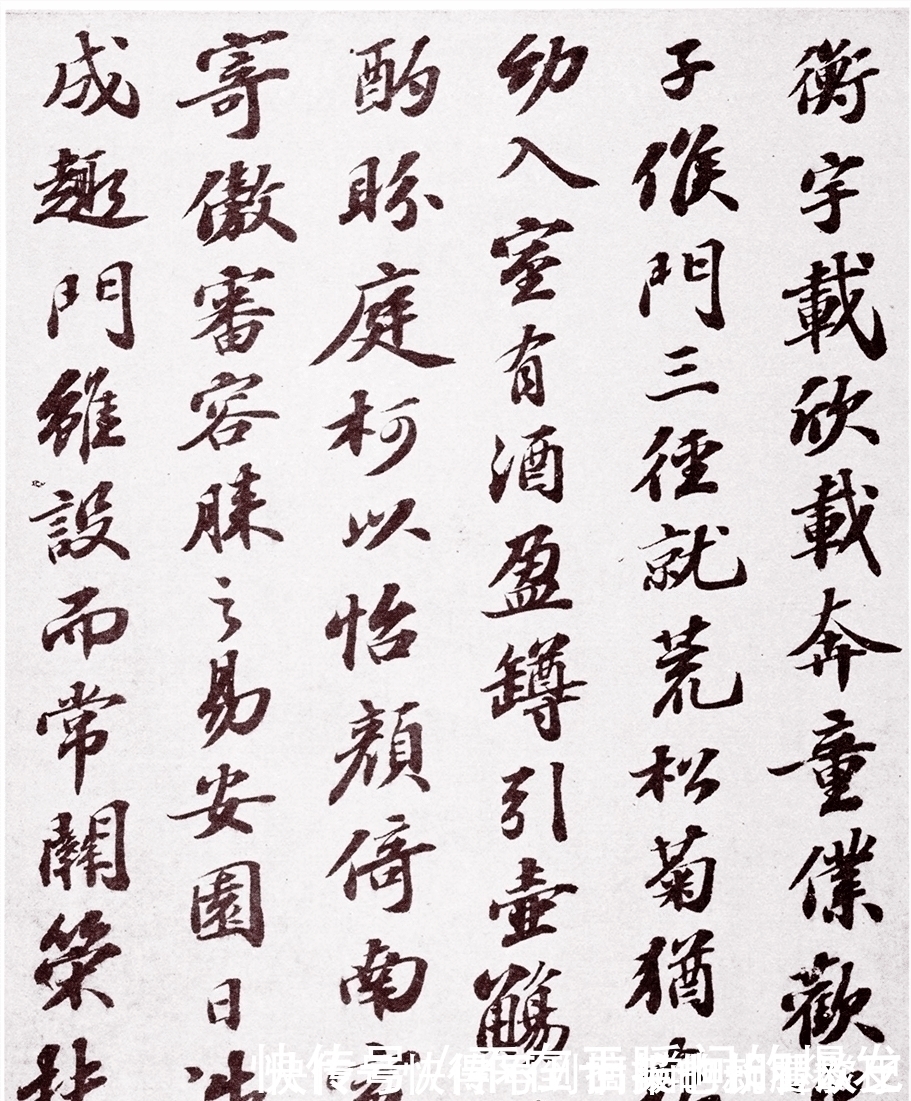 衡宇載欣載奔童僕歡
子候門三徑就荒松菊猶
幼入室有酒盈罇引壺觴
酌眄庭柯以怡顏倚南
寄傲審容膝之易安園日
成趣門雖設而常關策
快传号/